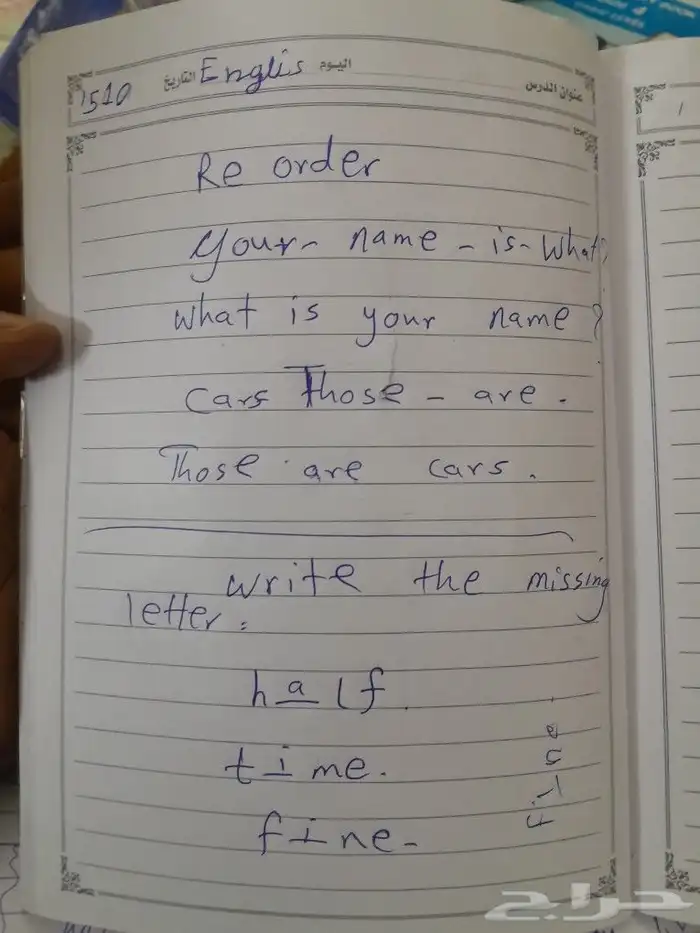 1510 التاريخ Englis اليوم عنوان الدرس
Re order
Your- name - is- What?
What is your name ?
Cars Those - are .
Those are cars .
write the missing
letter :
half.
time.
fine-
fine
حراج